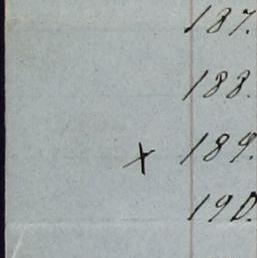 187.
188.
x 189.
190.